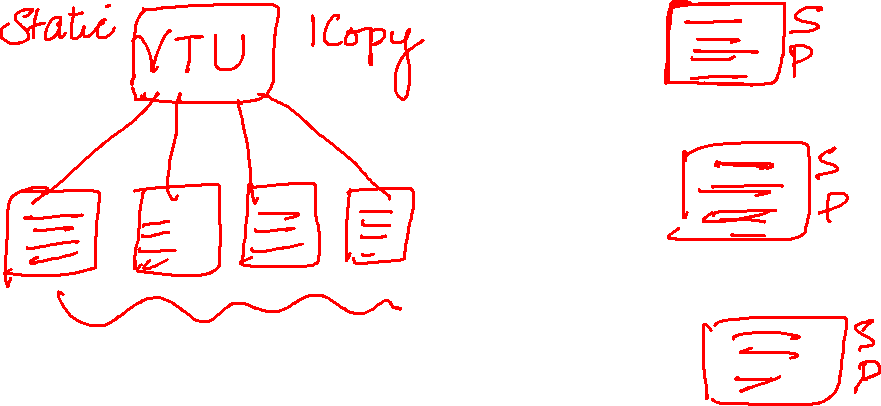 Static VTU 1Copy
S
P
S
P
S
P